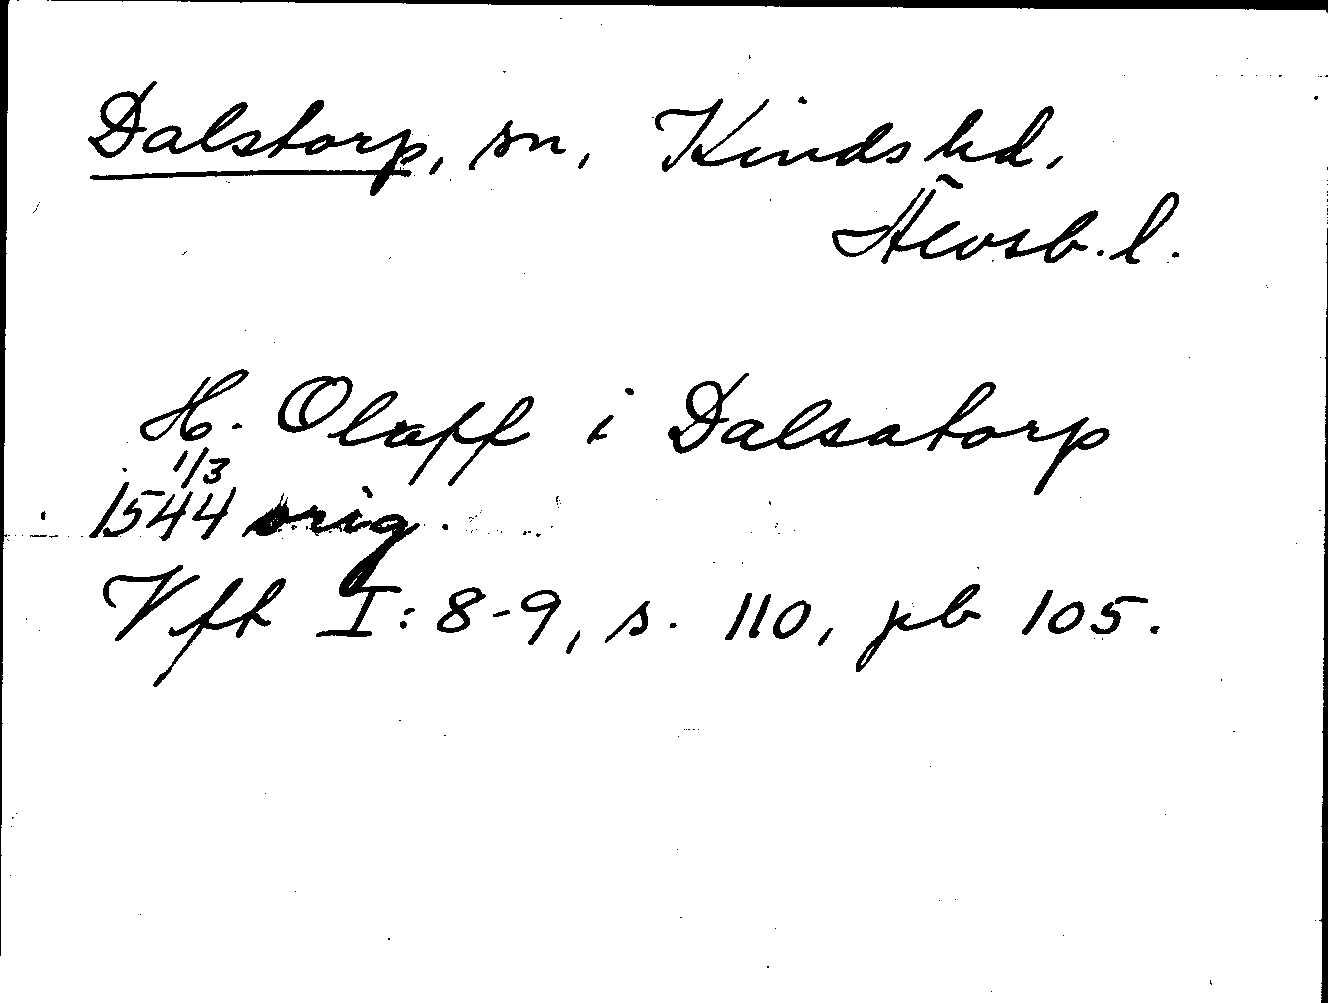 Dalstorp, sn, Kinds hd,
Älvsb. l.
H. Olaff i Dalsatorp
1/3
1544 orig.
Vfh I: 8-9, s. 110, pb 105.